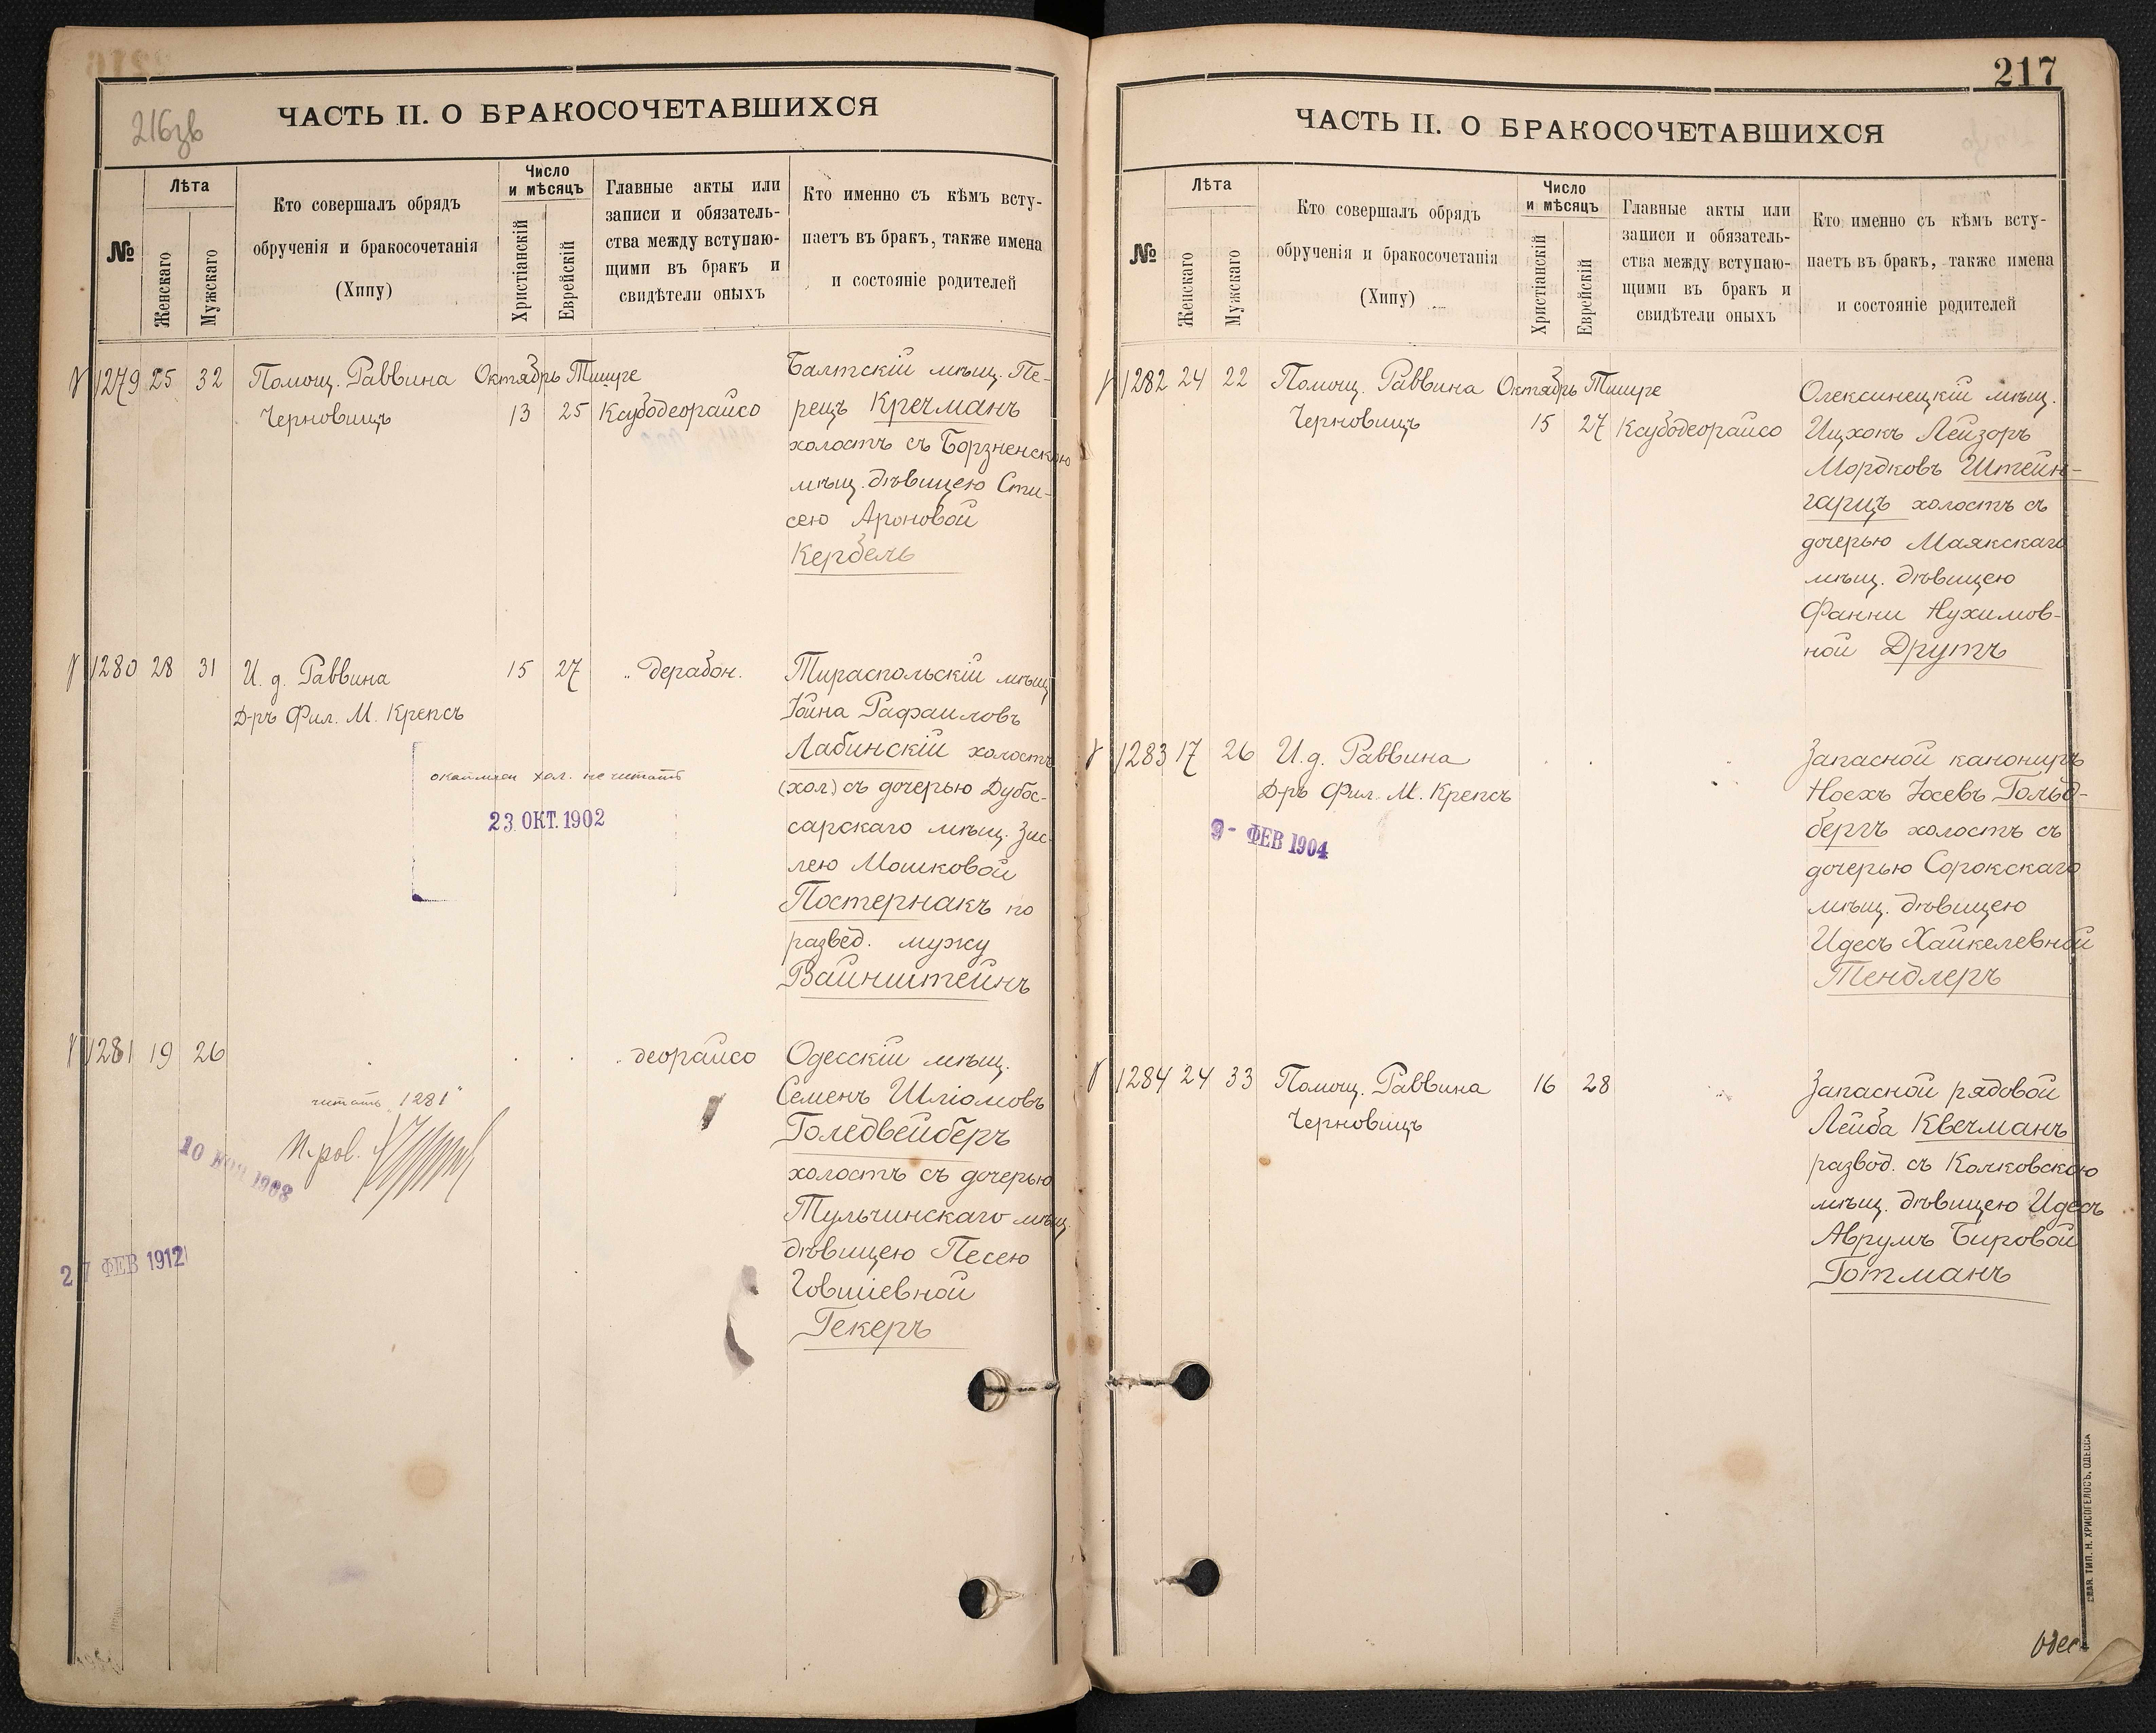 216зв
ЧАСТЬ II. О БРАКОСОЧЕТАВШИХСЯ
№
Лѣта
Женскаго
Мужскаго
Кто совершалъ обрядъ
обрученія и бракосочетанія
(Хипу)
Число
и мѣсяцъ
Христіанскій
Еврейскій
Главные акты или
записи и обязатель-
ства между вступаю-
щими въ бракъ и
свидѣтели оныхъ
Кто именно съ кѣмъ всту-
паетъ въ бракъ, также имена
и состояніе родителей
1279 25 32 Помощ. Раввина Октябрь Тишре
Черновицъ 13 25 Ксубодеорайсо
Балтскій мѣщ. Пе-
рецъ Кречманъ
холостъ съ Борзненскою
мѣщ. дѣвицею Сти-
сею Ароновой
Кербель
1280 28 31 И. д. Раввина 15 27 „ дерабон.
Д-ръ Фил. М. Крепсъ
Тираспольскій мѣщ
Іойна Рафаиловъ
Лабинскій холостъ
(хол) съ дочерью Дубос-
сарскаго мѣщ. Зис-
лею Мошковой
Постернакъ по
развед. мужу
Вайнштейнъ
хол. не читать
23 ОКТ. 1902
1281 19 26 деорайсо
Одесскій мѣщ.
Семенъ Шліомовъ
Голедвейберъ
холостъ съ дочерью
Тульчинскаго мѣщ.
дѣвицею Песею
Говшіевной
Гекеръ
читать „1281"
10 НОЯ 1908
27 ФЕВ 1912
217
ЧАСТЬ II. О БРАКОСОЧЕТАВШИХСЯ
№
Лѣта
Женскаго
Мужскаго
Кто совершалъ обрядъ
обрученія и бракосочетанія
(Хипу)
Число
и мѣсяцъ
Христіанскій
Еврейскій
Главные акты или
записи и обязатель-
ства между вступаю-
щими въ бракъ и
свидѣтели оныхъ
Кто именно съ кѣмъ всту-
паетъ въ бракъ, также имена
и состояніе родителей
1282 24 22 Помощ. Раввина Октябрь Тишре
Черновицъ 15 27 Ксубодеорайсо
Олексинецкій мѣщ.
Ицхокъ Лейзоръ
Мордковъ Штейн-
гарцъ холостъ съ
дочерью Маякскаго
мѣщ. дѣвицею
Фанни Нухимов-
ной Друтъ
1283 17 26 И. д. Раввина
Д-ръ Фил. М. Крепсъ
9- ФЕВ 1904
Запасной канониръ
Ноехъ Іосевъ Гольд-
бергъ холостъ съ
дочерью Сорокскаго
мѣщ. дѣвицею
Идесъ Хайкелевной
Тендлеръ
1284 24 33 Помощ. Раввина 16 28
Черновицъ
Запасной рядовой
Лейба Квечманъ
развод. съ Колковскою
мѣщ. дѣвицею Идесъ
Аврумъ Бировой
Готманъ
СЛАВ. ТИП. Н. ХРИСОГЕЛОСЪ, ОДЕССА